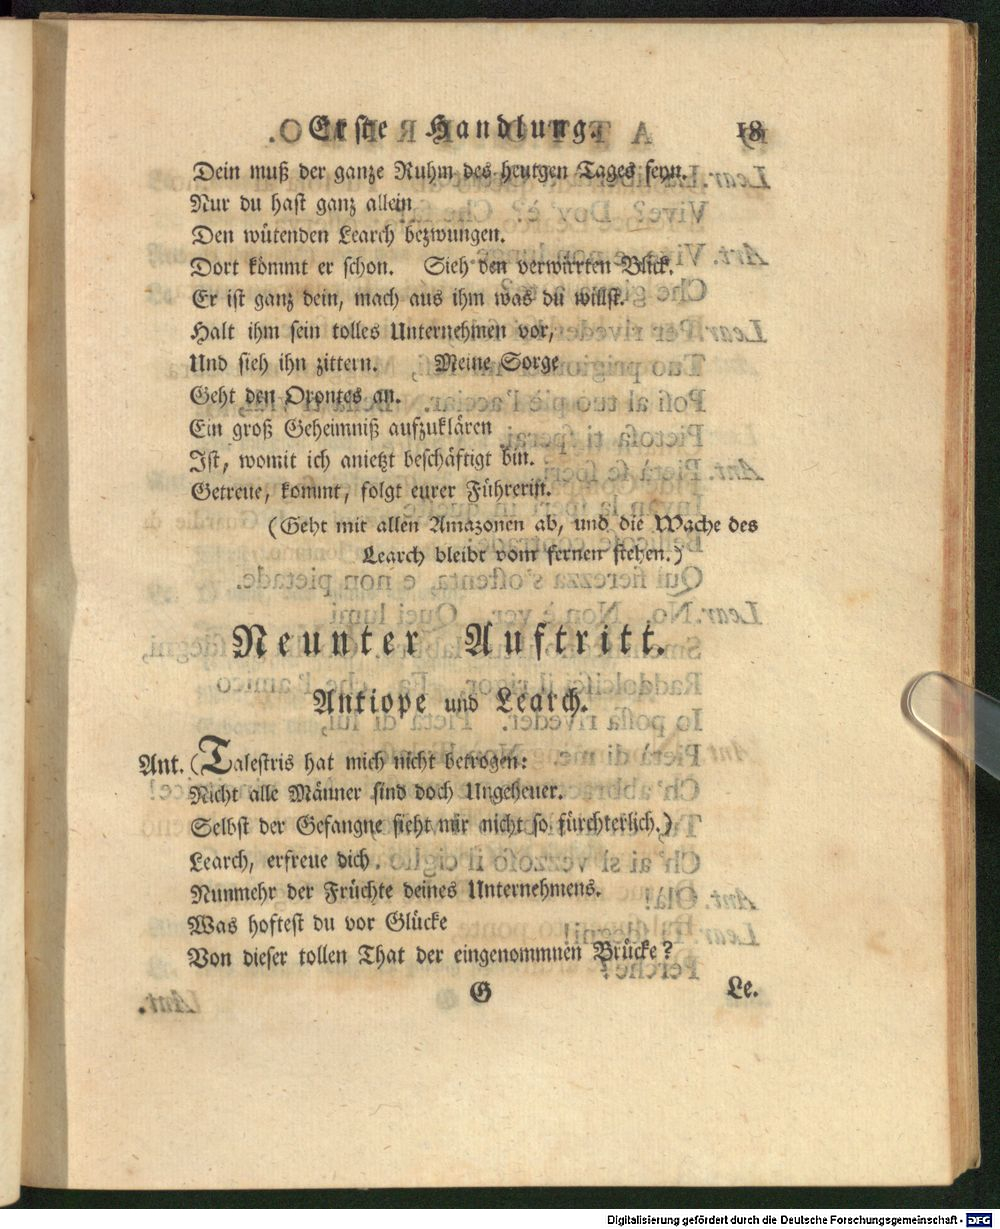 Erste Handlung. 18
Dein muß der ganze Ruhm des heutgen Tages seyn.
Nur du hast ganz allein
Den wütenden Learch bezwungen.
Dort kömmt er schon. Sieh den verwirrten Blick.
Er ist ganz dein, mach aus ihm was du willst.
Halt ihm sein tolles Unternehmen vor,
Und sieh ihn zittern. Meine Sorge
Geht den Orontes an.
Ein groß Geheimniß aufzuklären
Ist, womit ich anietzt beschäftigt bin.
Getreue, kommt, folgt eurer Führerin.
(Geht mit allen Amazonen ab, und die Wache des
Learch bleibt vom fernen stehen.)
Neunter Auftritt.
Antiope und Learch.
Ant. (Talestris hat mich nicht betrogen:
Nicht alle Männer sind doch Ungeheuer.
Selbst der Gefangne sieht mir nicht so fürchterlich.)
Learch, erfreue dich
Nunmehr der Früchte deines Unternehmens.
Was hoftest du vor Glücke
Von dieser tollen That der eingenommnen Brücke?
G Le.
Digitalisierung gefördert durch die Deutsche Forschungsgemeinschaft - DFG